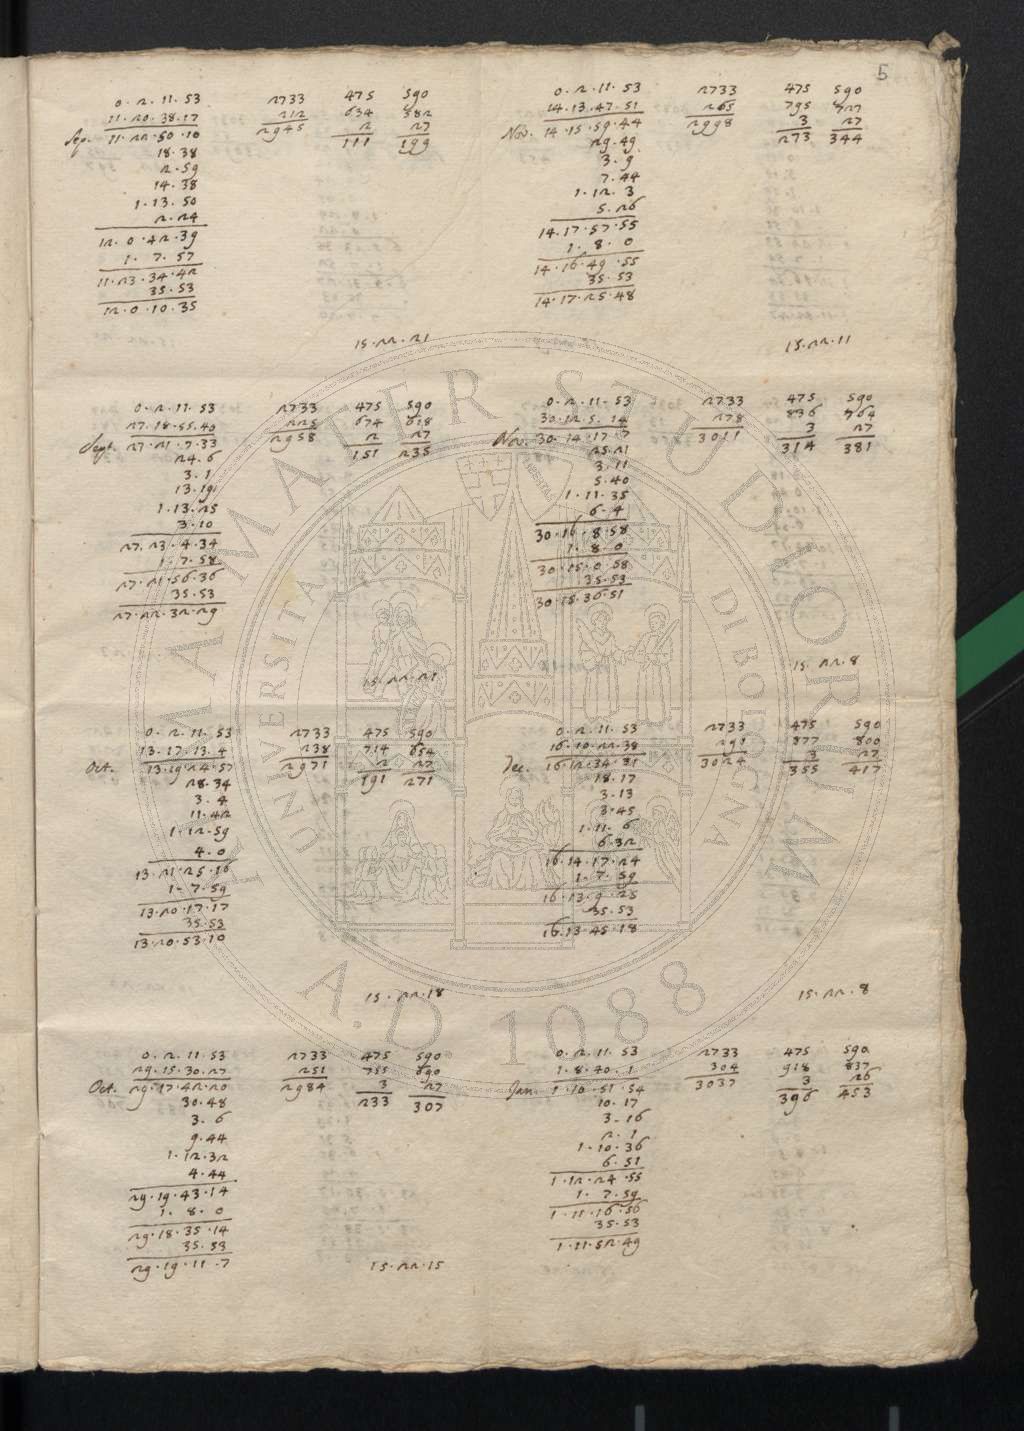 5
0. 2. 11. 53 2733 475 590
11. 20. 38. 17 212 634 582
Sep. 11. 22. 50. 10 2945 2 27
111 199
18. 38
2. 59
14. 38
1. 13. 50
2. 24
12. 0. 42. 39
1. 7. 57
11. 23. 34. 42
35. 53
12. 0. 10. 35
15. 22. 21
0. 2. 11. 53 2733 475 590
27. 18. 55. 40 225 674 618
Sept. 27. 21. 7. 33 2958 2 27
151 235
24. 6
3. 1
13. 19
1. 13. 25
3. 10
27. 23. 4. 34
1. 7. 58
27. 21. 56. 36
35. 53
27. 22. 32. 29
15. 22. 21
0. 2. 11. 53 2733 475 590
13. 17. 13. 4 238 714 654
Oct. 13. 19. 24. 57 2971 2 27
191 271
28. 34
3. 4
11. 42
1. 12. 59
4. 0
13. 21. 25. 16
1. 7. 59
13. 20. 17. 17
35. 53
13. 20. 53. 10
15. 22. 18
0. 2. 11. 53 2733 475 590
29. 15. 30. 27 251 755 690
Oct. 29. 17. 42. 20 2984 3 27
233 307
30. 48
3. 6
9. 44
1. 12. 32
4. 44
29. 19. 43. 14
1. 8. 0
29. 18. 35. 14
35. 53
29. 19. 11. 7
15. 22. 15
0. 2. 11. 53 2733 475 590
14. 13. 47. 51 265 795 727
Nov. 14. 15. 59. 44 2998 3 27
273 344
29. 49
3. 9
7. 44
1. 12. 3
5. 26
14. 17. 57. 55
1. 8. 0
14. 16. 49. 55
35. 53
14. 17. 25. 48
15. 22. 11
0. 2. 11. 53 2733 475 590
30. 12. 5. 14 278 836 764
Nov. 30. 14. 17. 7 3011 3 27
314 381
25. 21
3. 11
5. 40
1. 11. 35
6. 4
30. 16. 8. 58
1. 8. 0
30. 15. 0. 58
35. 53
30. 15. 36. 51
15. 22. 8
0. 2. 11. 53 2733 475 590
16. 10. 22. 38 291 877 800
Dec. 16. 12. 34. 31 3024 3 27
355 417
18. 17
3. 13
3. 45
1. 11. 6
6. 32
16. 14. 17. 24
1. 7. 59
16. 13. 9. 25
35. 53
16. 13. 45. 18
15. 22. 8
0. 2. 11. 53 2733 475 590
1. 8. 40. 1 304 918 837
Jan. 1. 10. 51. 54 3037 3 26
396 453
10. 17
3. 16
2. 1
1. 10. 36
6. 51
1. 12. 24. 55
1. 7. 59
1. 11. 16. 56
35. 53
1. 11. 52. 49
ALMA MATER STUDIORUM
UNIVERSITÀ DI BOLOGNA
A.D. 1088